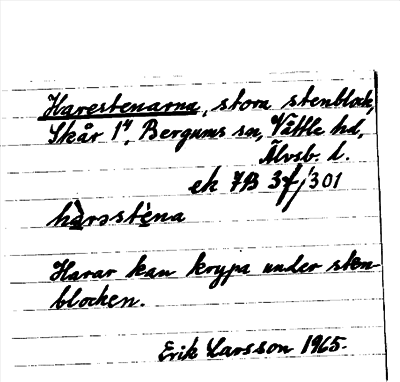 Harestenarna, stora stenblock,
Skår 1⁴, Bergums sn, Vättle hd,
Älvsb. l.
ek 7B 3f/301
hàrsstèna
Harar kan krypa under sten-
blocken.
Erik Larsson 1965.